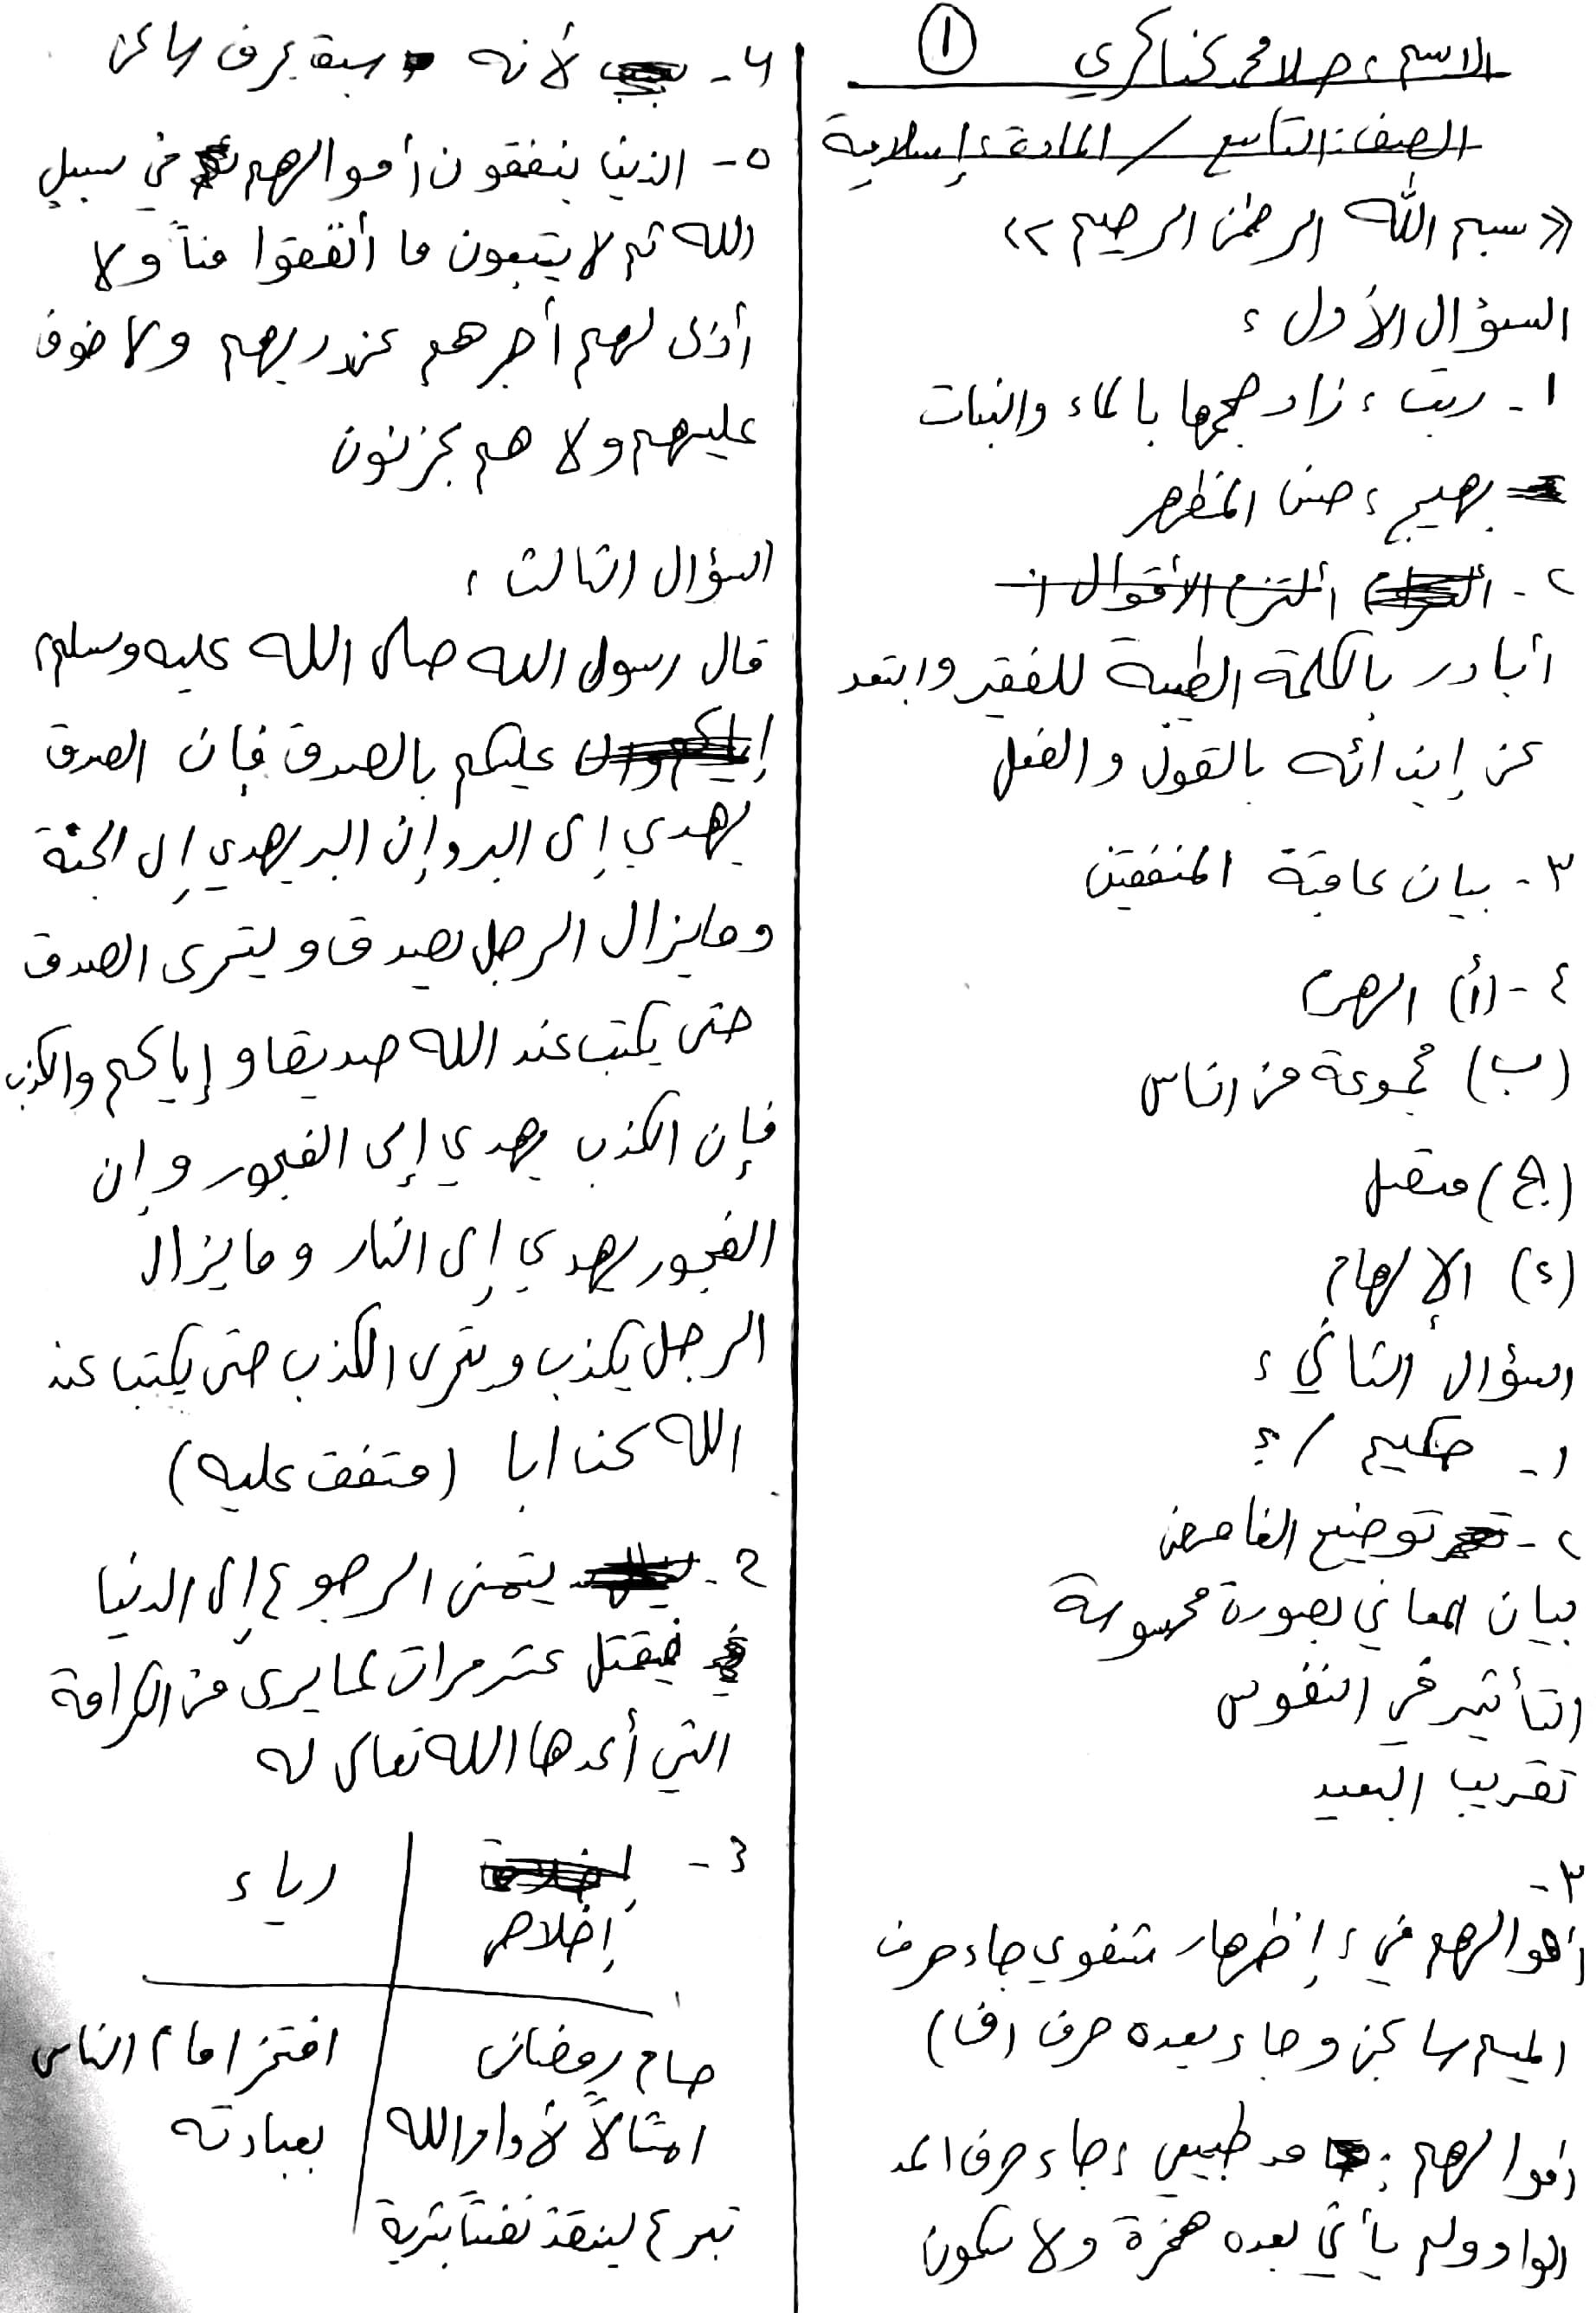 الاسم : صلاح محمد
١
الصف : التاسع / المادة : إسلامية
« بسم الله الرحمن الرحيم »
السؤال الأول :
١- ربت : زاد حجمها بالماء والنبات
بهيج : حسن المظهر
٢- ألتزم الأقوال
أبادر بالكلمة الطيبة للفقير وابتعد
عن إيذائه بالقول والفعل
٣- بيان عاقبة المنفقين
٤- (أ) الهرم
(ب) مجموعة من الناس
(ج) متصل
(د) الإلهام
السؤال الثاني :
١- حكيم /
٢- توضيح الغامض
بيان المعاني بصورة محسوسة
التأثير في النفوس
تقريب البعيد
٣-
أموالهم في : إظهار شفوي جاء حرف
الميم ساكن وجاء بعده حرف (ف)
اموالهم : مد طبيعي : جاء حرف المد
الواو ولم يأتي بعده همزة ولا سكون
٤- لأنه سبقه حرف ساكن
٥- الذين ينفقون أموالهم في سبيل
الله ثم لا يتبعون ما أنفقوا مناً ولا
أذى لهم أجرهم عند ربهم ولا خوف
عليهم ولا هم يحزنون
السؤال الثالث :
قال رسول الله صلى الله عليه وسلم :
عليكم بالصدق فإن الصدق
يهدي إلى البر وإن البر يهدي إلى الجنة
وما يزال الرجل يصدق و يتحرى الصدق
حتى يكتب عند الله صديقا و إياكم والكذب
فإن الكذب يهدي إلى الفجور و إن
الفجور يهدي إلى النار وما يزال
الرجل يكذب و يتحرى الكذب حتى يكتب عند
الله كذابا (متفق عليه)
2- يتمنى الرجوع إلى الدنيا
فيقتل عشر مرات لما يرى من الكرامة
التي أعدها الله تعالى له
3-
إخلاص
رياء
صام رمضان
امتثالاً لأوامر الله
تبرع لينقذ نفساً بشرية
افتخر امام الناس
بعبادته